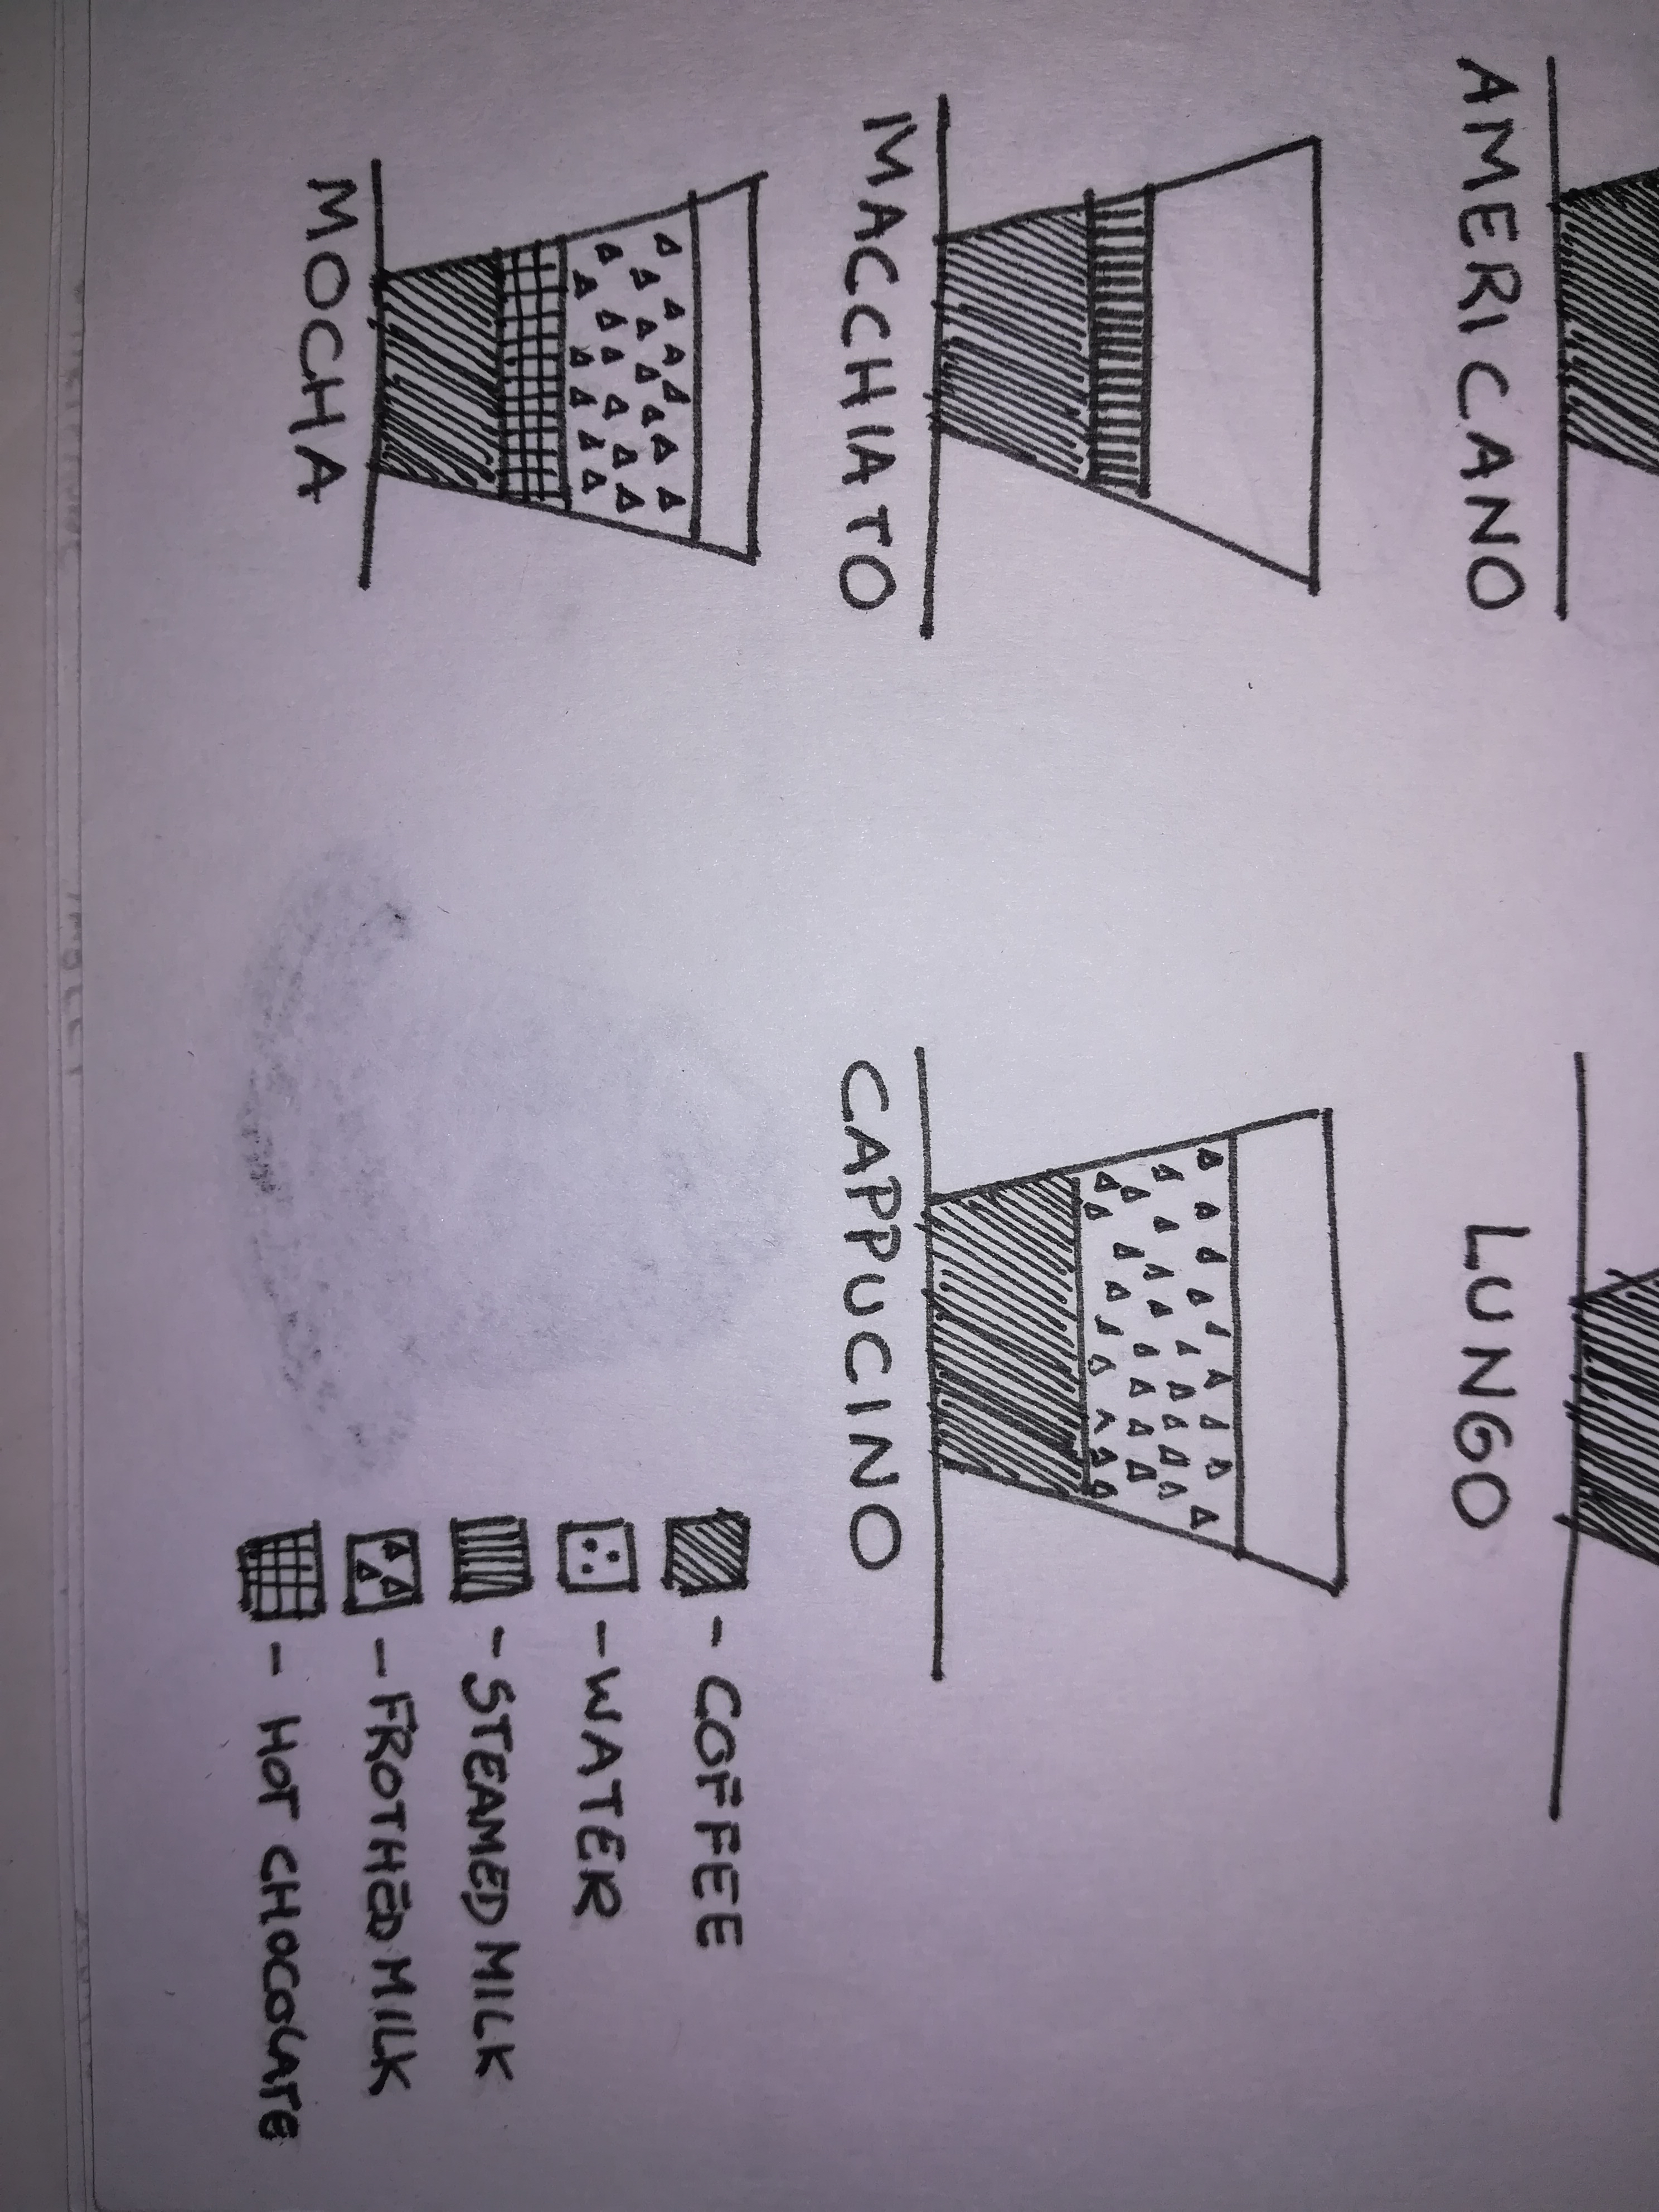 AMERICANO
LUNGO
MACCHIATO
CAPPUCINO
MOCHA
- COFFEE
- WATER
- STEAMED MILK
- FROTHED MILK
- HOT CHOCOLATE